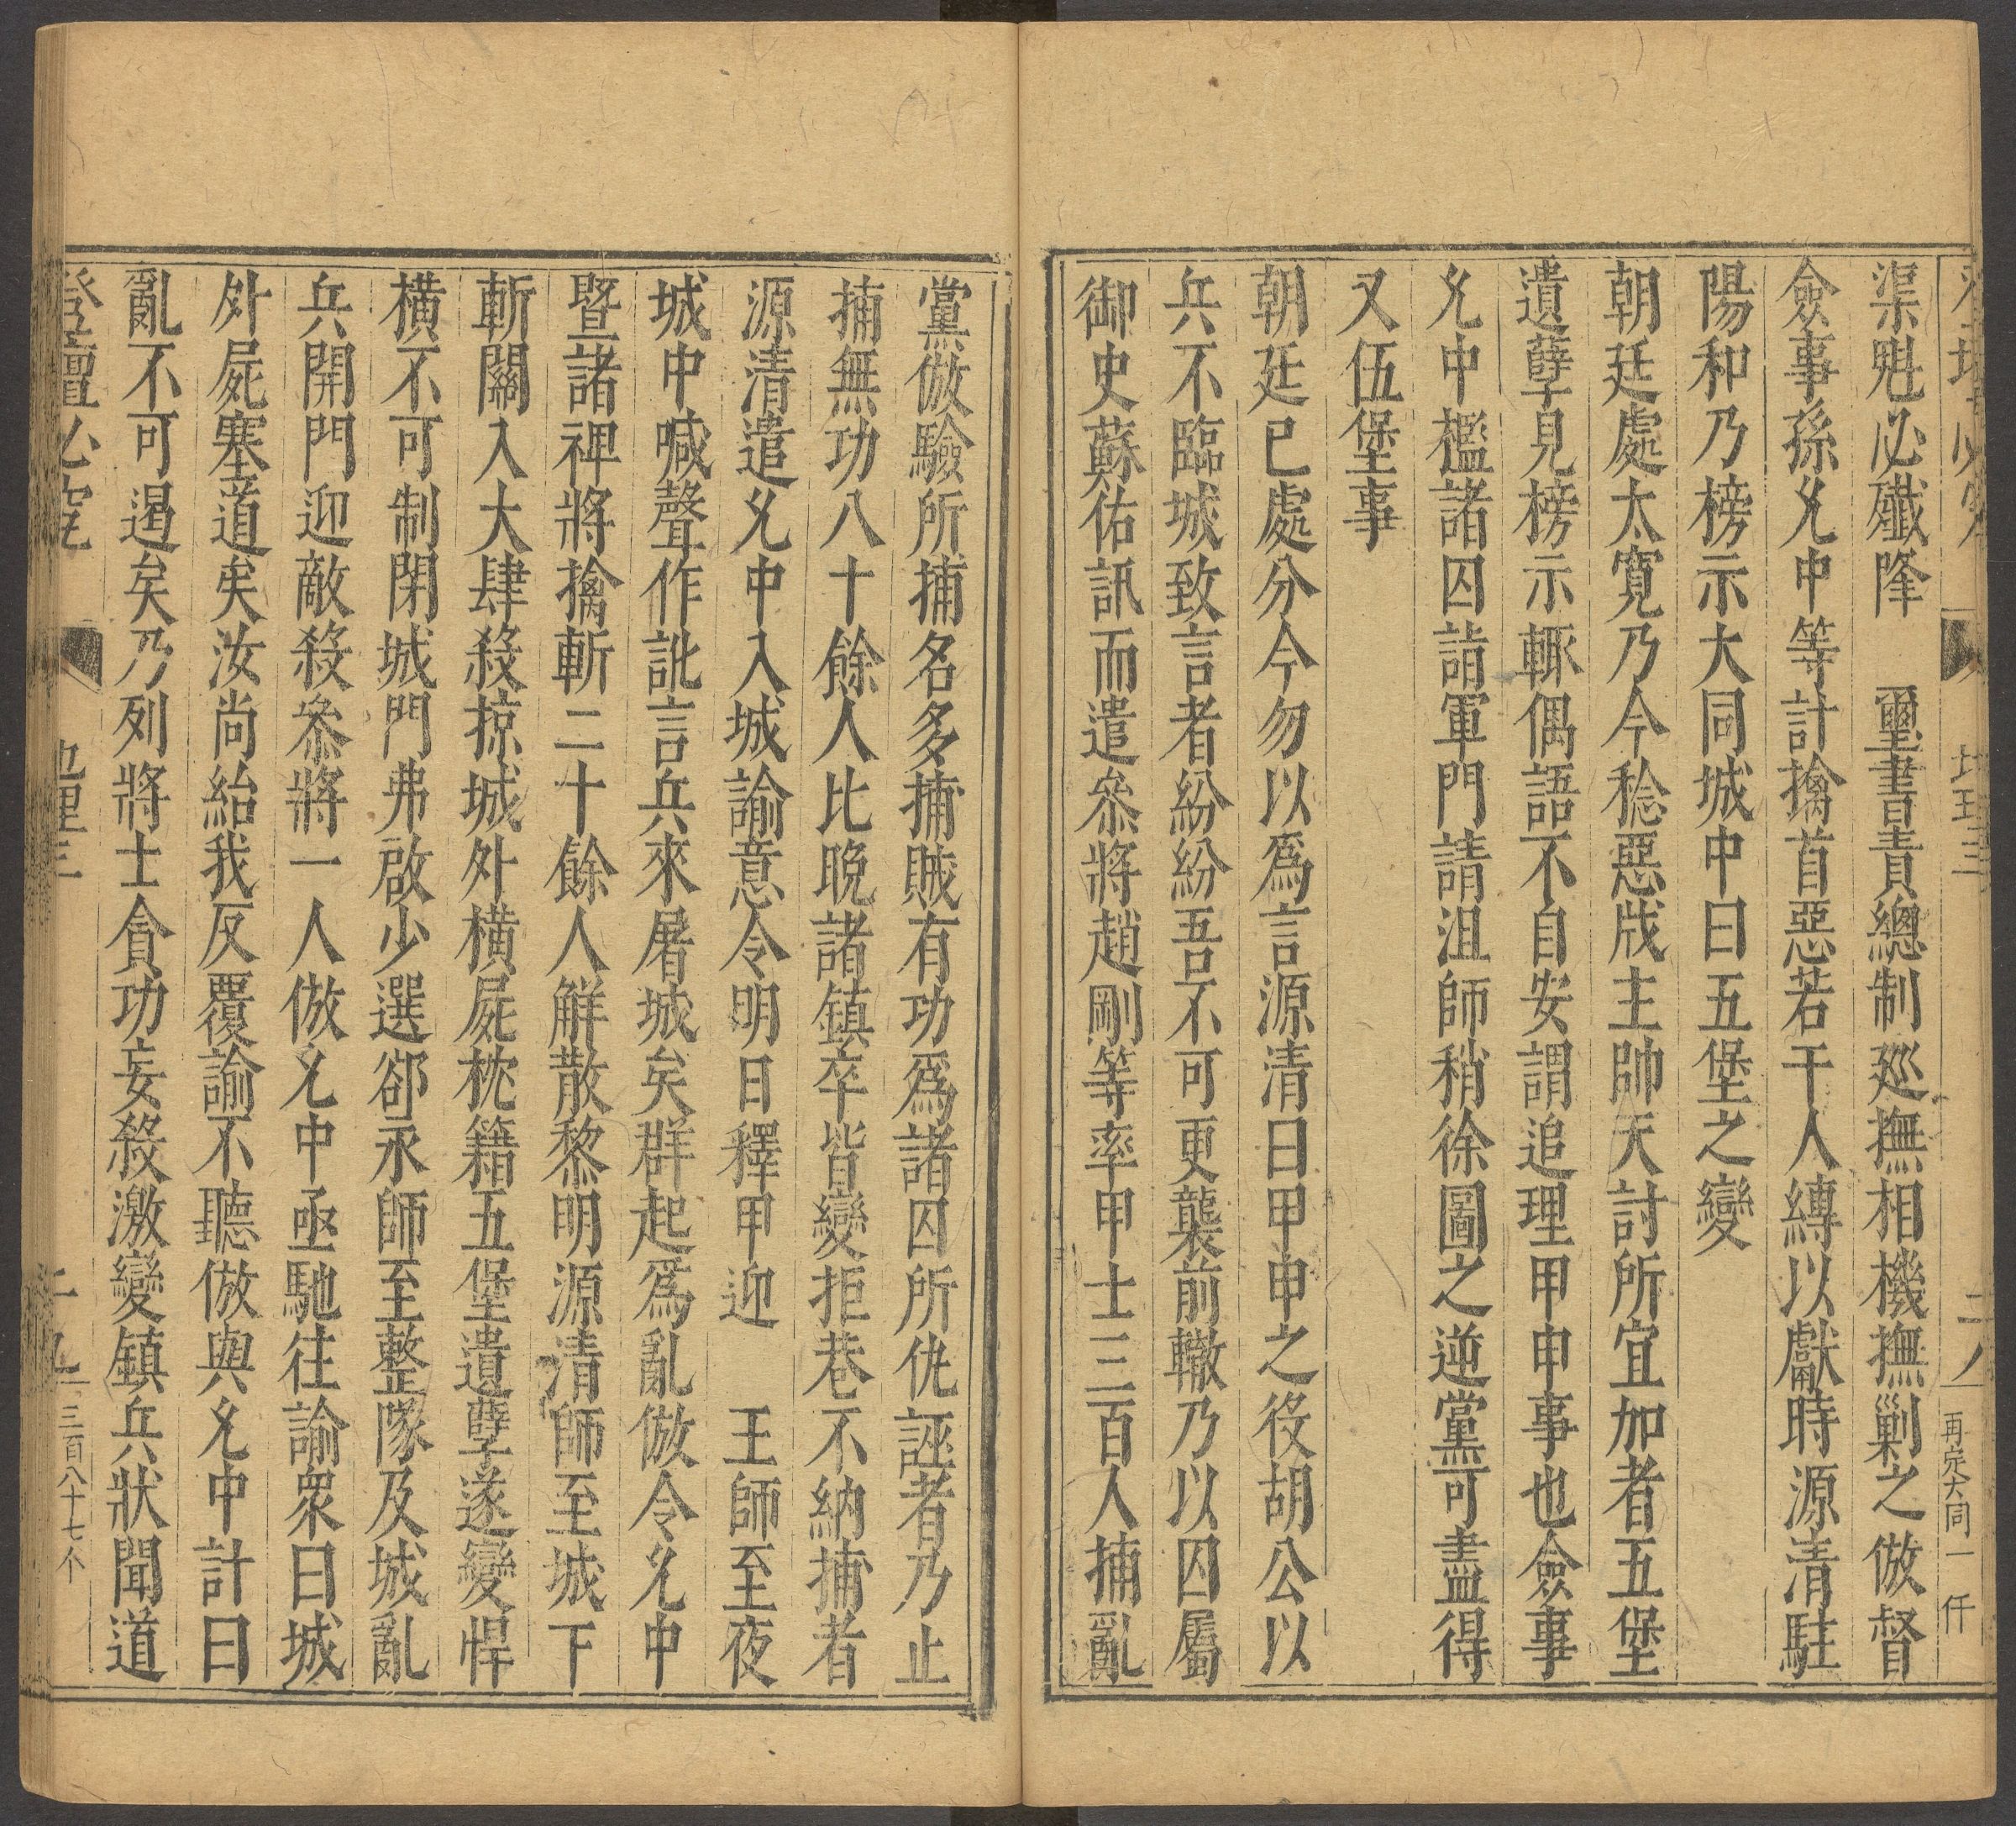 地理三
二八
再定大同一
仟
渠魁必殲隆　璽書責總制巡撫相機撫剿之倣督
僉事孫允中等計擒首惡若干人縛以獻時源清駐
陽和乃榜示大同城中曰五堡之變
朝廷處太寬乃今稔惡戕主帥天討所宜加者五堡
遺孽見榜示輒偶語不自安謂追理甲申事也僉事
允中檻諸囚詣軍門請沮師稍徐圖之逆黨可盡得
又伍堡事
朝廷已處分今勿以爲言源清曰甲申之役胡公以
兵不臨城致言者紛紛吾不可更襲前轍乃以囚屬
御史蘇佑訊而遣叅將趙剛等率甲士三百人捕亂
黨倣驗所捕名多捕賊有功爲諸囚所仇誣者乃止
捕無功八十餘人比晚諸鎮卒皆變拒巷不納捕者
源清遣允中入城諭意令明日釋甲迎　王師至夜
城中喊聲作訛言兵來屠城矣群起爲亂倣令允中
暨諸裨將擒斬二十餘人觧散黎明源清師至城下
斬關入大肆殺掠城外橫屍枕籍五堡遺孽遂變悍
橫不可制閉城門弗啟少選郤永師至整隊及城亂
兵開門迎敵殺叅將一人倣允中亟馳往諭衆曰城
外屍塞道矣汝尚紿我反覆諭不聽倣與允中計曰
亂不可遏矣乃列將士貪功妄殺激變鎮兵狀聞道
登壇必究
地理三
二九
三百八十七个